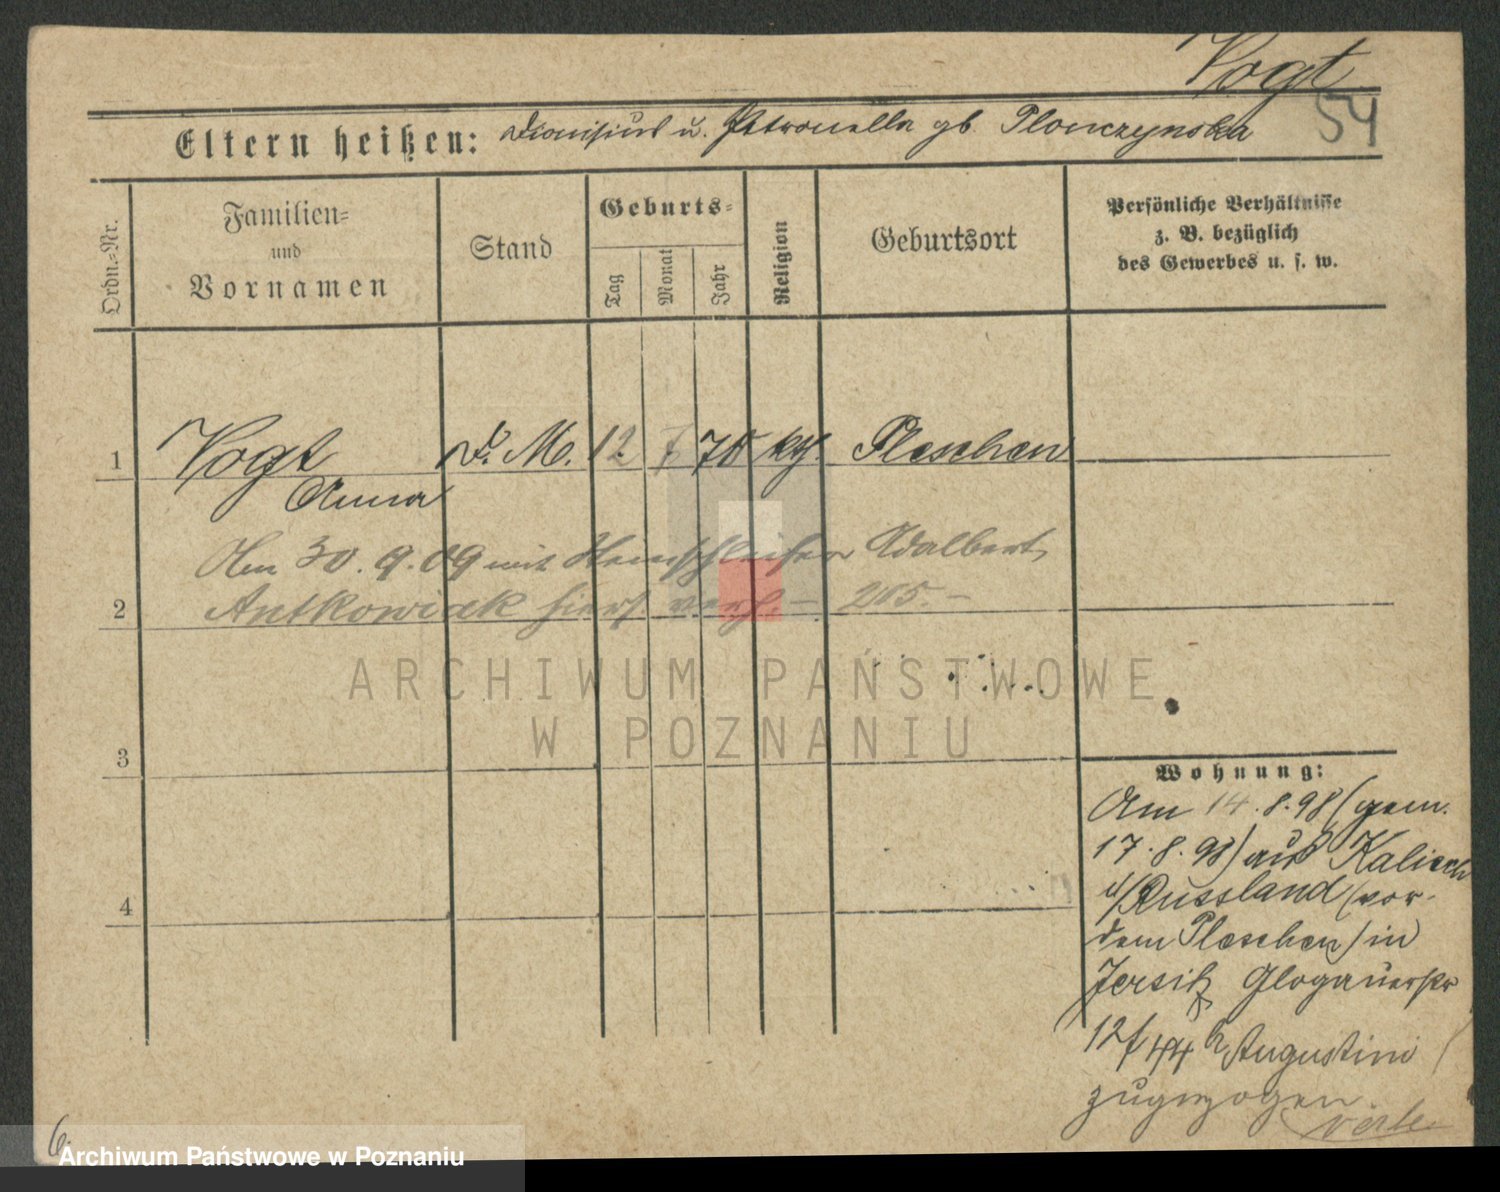 Vogt
54
Eltern heißen: Dionisius u. Petronella gb. Plonczynska
Ordn.-Nr.
Familien-
und
Vornamen
Stand
Geburts-
Tag
Monat
Jahr
Religion
Geburtsort
Persönliche Verhältnisse
z. B. bezüglich
des Gewerbes u. s. w.
1 Vogt D. M. 12 7 78 kth. Pleschen
Anna
Am 30.9.09 mit Adalbert
2 Antkowiak hiers. verh. – 205. –
ARCHIWUM PAŃSTWOWE
W POZNANIU
3
Wohnung:
Am 14.8.98 (gem.
17.8.98) aus Kalisch
i/Russland (vor-
dem Pleschen) in
4
Jersitz Glogauerstr
Augustini
zugezogen.
6.
Archiwum Państwowe w Poznaniu